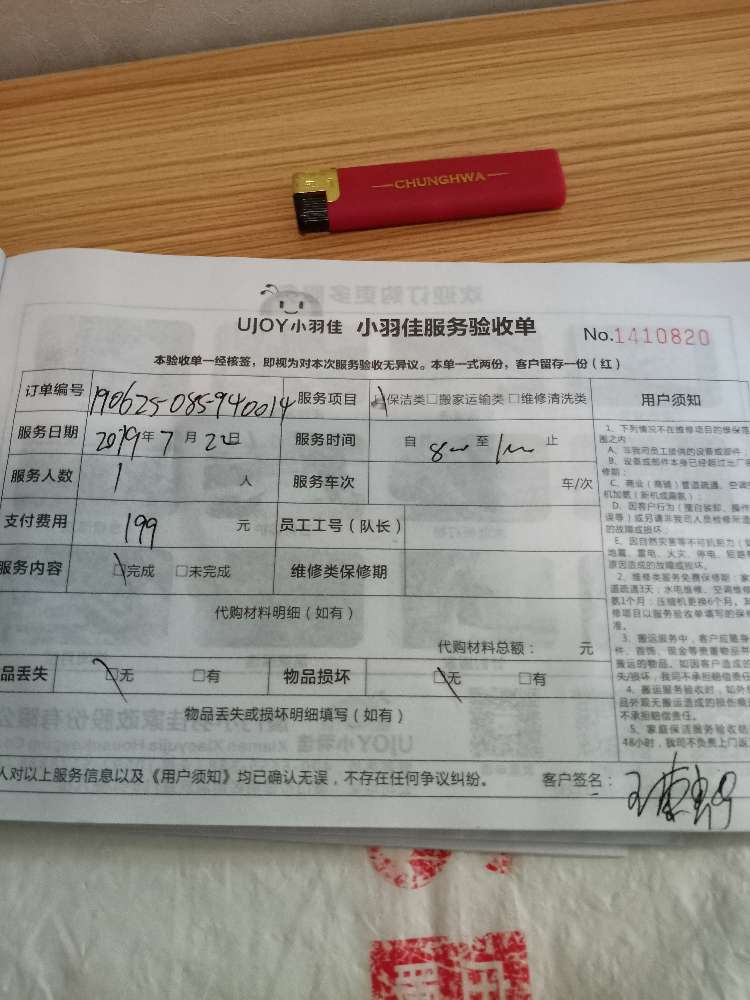 CHUNGHWA
UJOY小羽佳 小羽佳服务验收单 No.1410820
本验收单一经核签，即视为对本次服务验收无异议。本单一式两份，客户留存一份（红）
订单编号 190625-085940014 服务项目 保洁类□搬家运输类□维修清洗类 用户须知
服务日期 2019年7月22日 服务时间 自 至 止
服务人数 1 人 服务车次 车/次
支付费用 199 元 员工工号（队长）
服务内容 □完成 □未完成 维修类保修期
代购材料明细（如有）
代购材料总额： 元
品丢失 □无 □有 物品损坏 □无 □有
物品丢失或损坏明细填写（如有）
人对以上服务信息以及《用户须知》均已确认无误，不存在任何争议纠纷。 客户签名：
1、下列情况不在维修项目的维保范
围之内
A、非我司员工提供的设备或部件
B、设备或部件本身已经超过出厂
修期；
C、商业（商铺）管道疏通、空调
机加氨（新机或漏氨）；
D、因客户行为（擅自装卸、操作
误等）或另请非我司人员检修所
的故障或损坏
E、因自然灾害等不可抗拒力（
地震、雷电、火灾、停电、短路
原因造成的故障或损坏。
2、维修类服务免费保修期：
道疏通3天；水电维修、空调维
氨1个月；压缩机更换6个月。
修项目以服务验收单填写的保
准。
3、搬运服务中，客户应随身
件、首饰、现金等贵重物品
搬运的物品。如因客户造成的
失/损坏，我司不承担赔偿责任
4、搬运服务验收时，如外
品外观无搬运造成的损伤痕
不承担赔偿责任。
5、家庭保洁服务验收
48小时，我司不负责上门返